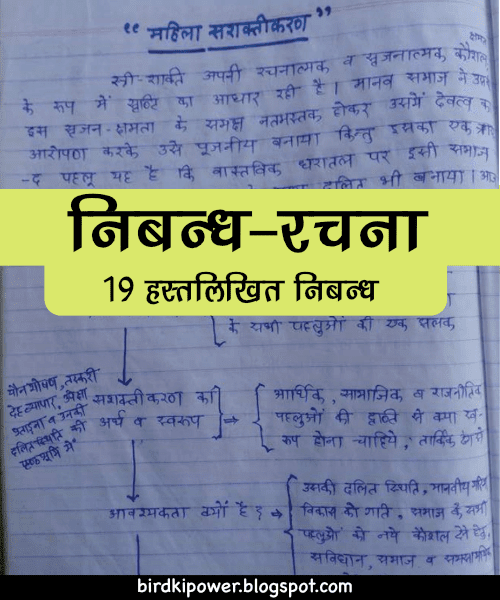 “ महिला सशक्तीकरण ”
क्षमता
स्त्री-शक्ति अपनी रचनात्मक व सृजनात्मक कौशल
के रूप में सृष्टि का आधार रही है। मानव समाज ने उसके
इस सृजन-क्षमता के समक्ष नतमस्तक होकर उसमें देवत्व का
आरोपण करके उसे पूजनीय बनाया किन्तु इसका एक
-द पहलू यह है कि वास्तविक धरातल पर इसी समाज
दलित भी बनाया।
निबन्ध-रचना
19 हस्तलिखित निबन्ध
के सभी पहलुओं की एक झलक
यौन शोषण, तस्करी
देह व्यापार,
सशक्तीकरण का
अर्थ व स्वरूप
आर्थिक, सामाजिक व राजनीतिक
पहलुओं की दृष्टि से क्या स्व-
रूप होना चाहिये, तार्किक ढंग से
आवश्यकता क्यों है?
उसकी दलित स्थिति, मानवीय
विकास की गति, समाज के सभी
पहलुओं को नये कौशल देने हेतु,
संविधान, समाज व
birdkipower.blogspot.com